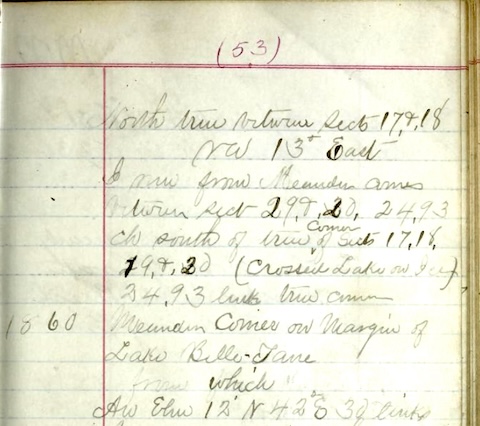 (53)
North true between Sects 17, & 18
va 13° East
I run from Meander
between sect 29, & 20, 24,93
ch south of true Corner of Sects 17, 18,
19, & 20 (Crossed Lake on Ice)
24,93 links true corner
18 60 Meander Corner on Margin of
Lake Belle-Tane
from which
An Elm 12 N 42° E 39 links